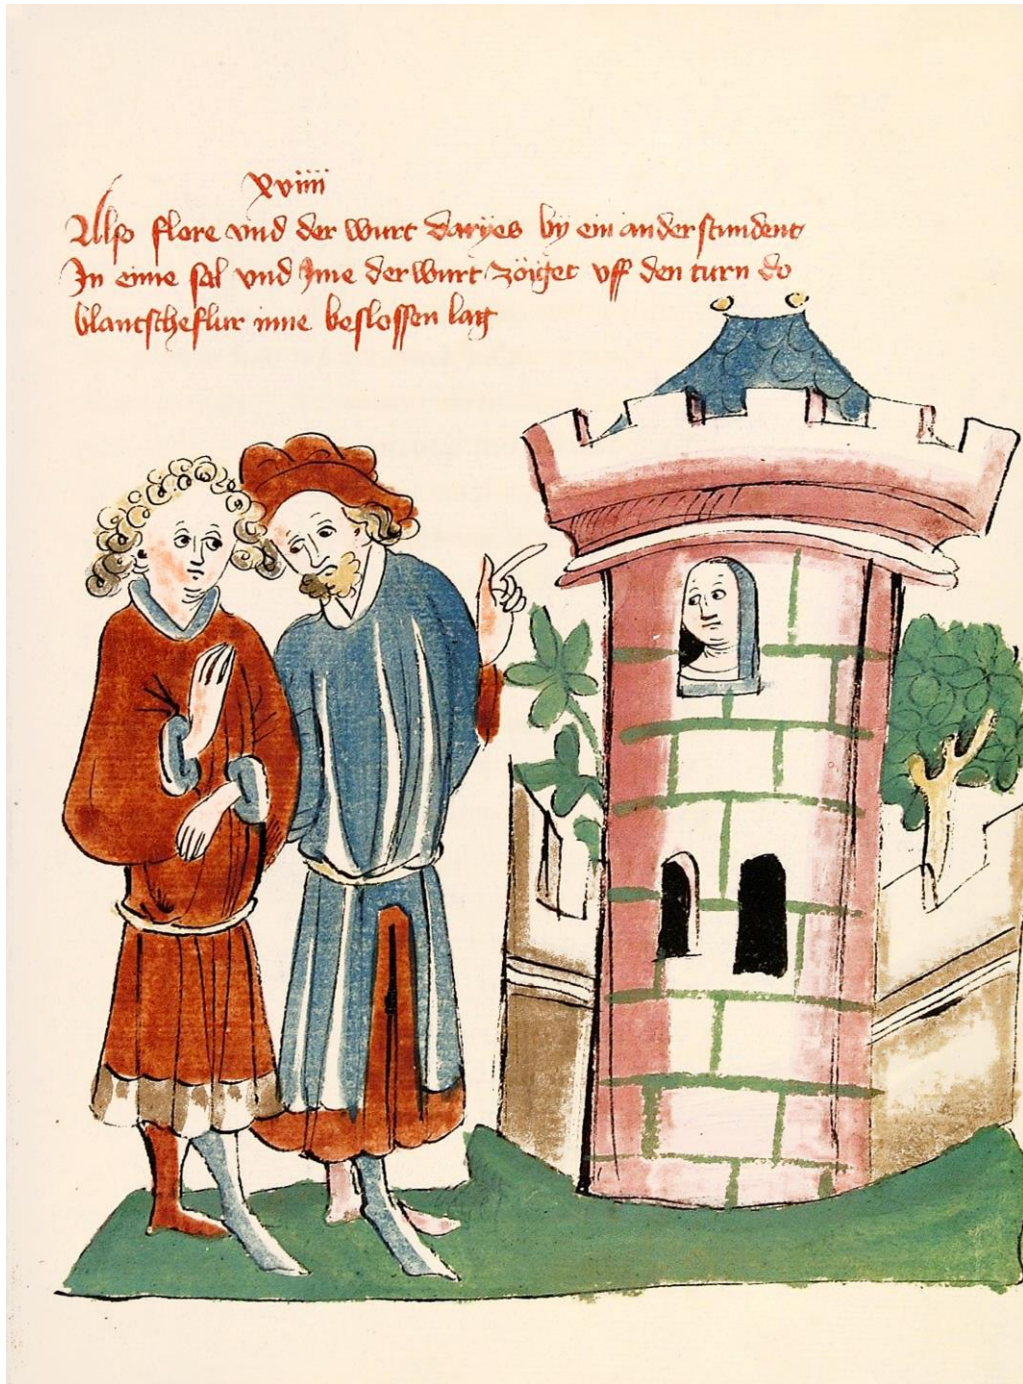 xviiii
Also flore vnd der wurt daryes by ein ander stundent
In eime sal vnd Ime der wurt zöiget vff den turn do
blantscheflur inne beslossen lag